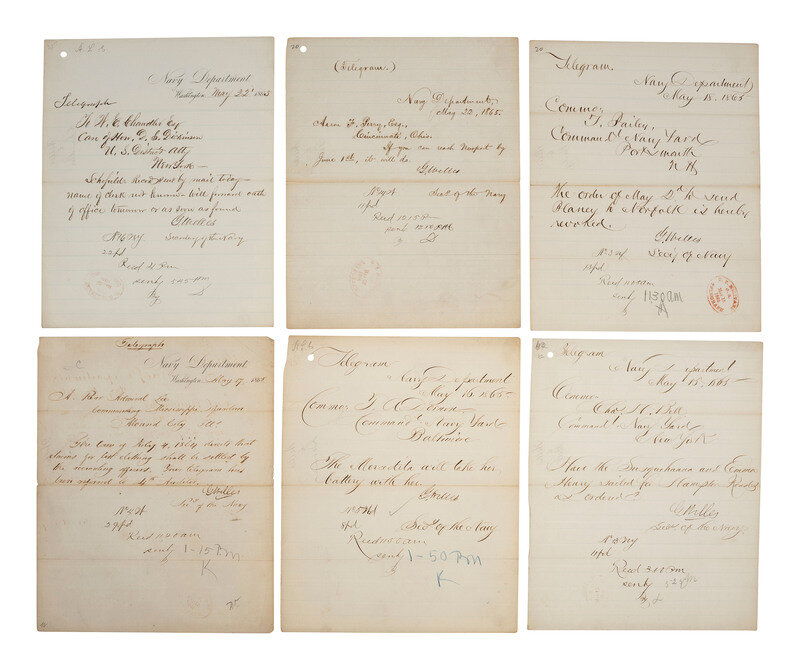 A. L. S.
Navy Department
Washington, May 22 1865
Telegraph
To W. E. Chandler Esq
Care of Hon. D. S. Dickinson
U. S. District Atty
New York
Schofield sent by mail to-day
name of clerk not known will forward oath
of office tomorrow or as soon as found
G Welles
Secretary of the Navy
Recd
sent 545 Pm
20
(Telegram.)
Navy Department,
May 22, 1865.
Aaron F. Perry, Esq.,
Cincinnati, Ohio.
If you can reach Newport by
June 1st, it will do.
G Welles
Sec'y of the Navy
Recd 1015 Pm
sent 1010 PM
20
Telegram.
Navy Department
May 18, 1865
Commo,
T. Bailey,
Commdt Navy Yard
Portsmouth
N. H.
The order of May 2d to send
Blaney to Norfolk is hereby
revoked.
G Welles
Sec'y of Navy
Recd 1100 am
sent 1130 am
Telegraph
Navy Department
Washington, May 17, 1865
A. Rear Admiral Lee
Commanding Mississippi Squadron
Mound City Ills
The Law of July 4, 1864 directs that
claims for lost clothing shall be settled by
the accounting officers. Your telegram has
been referred to 4th Auditor.
G Welles
Secy of the Navy
Recd 1100 am
sent 1-15 P.M
K
Telegram
Navy Department
May 16, 1865
Commo, T. A. Dornin
Commandt Navy Yard
Baltimore
The Merceditta will take her
battery with her.
G Welles
Secy of the Navy
Recd 1100 am
sent 1-50 PM
K
Telegram
Navy Department
May 15, 1865
Commo
Chas H. Bell
Commandt Navy Yard
New York
Have the Susquehanna and Emma
Henry sailed for Hampton Roads
as ordered?
G Welles
Secy of the Navy
Recd 310 Pm
sent